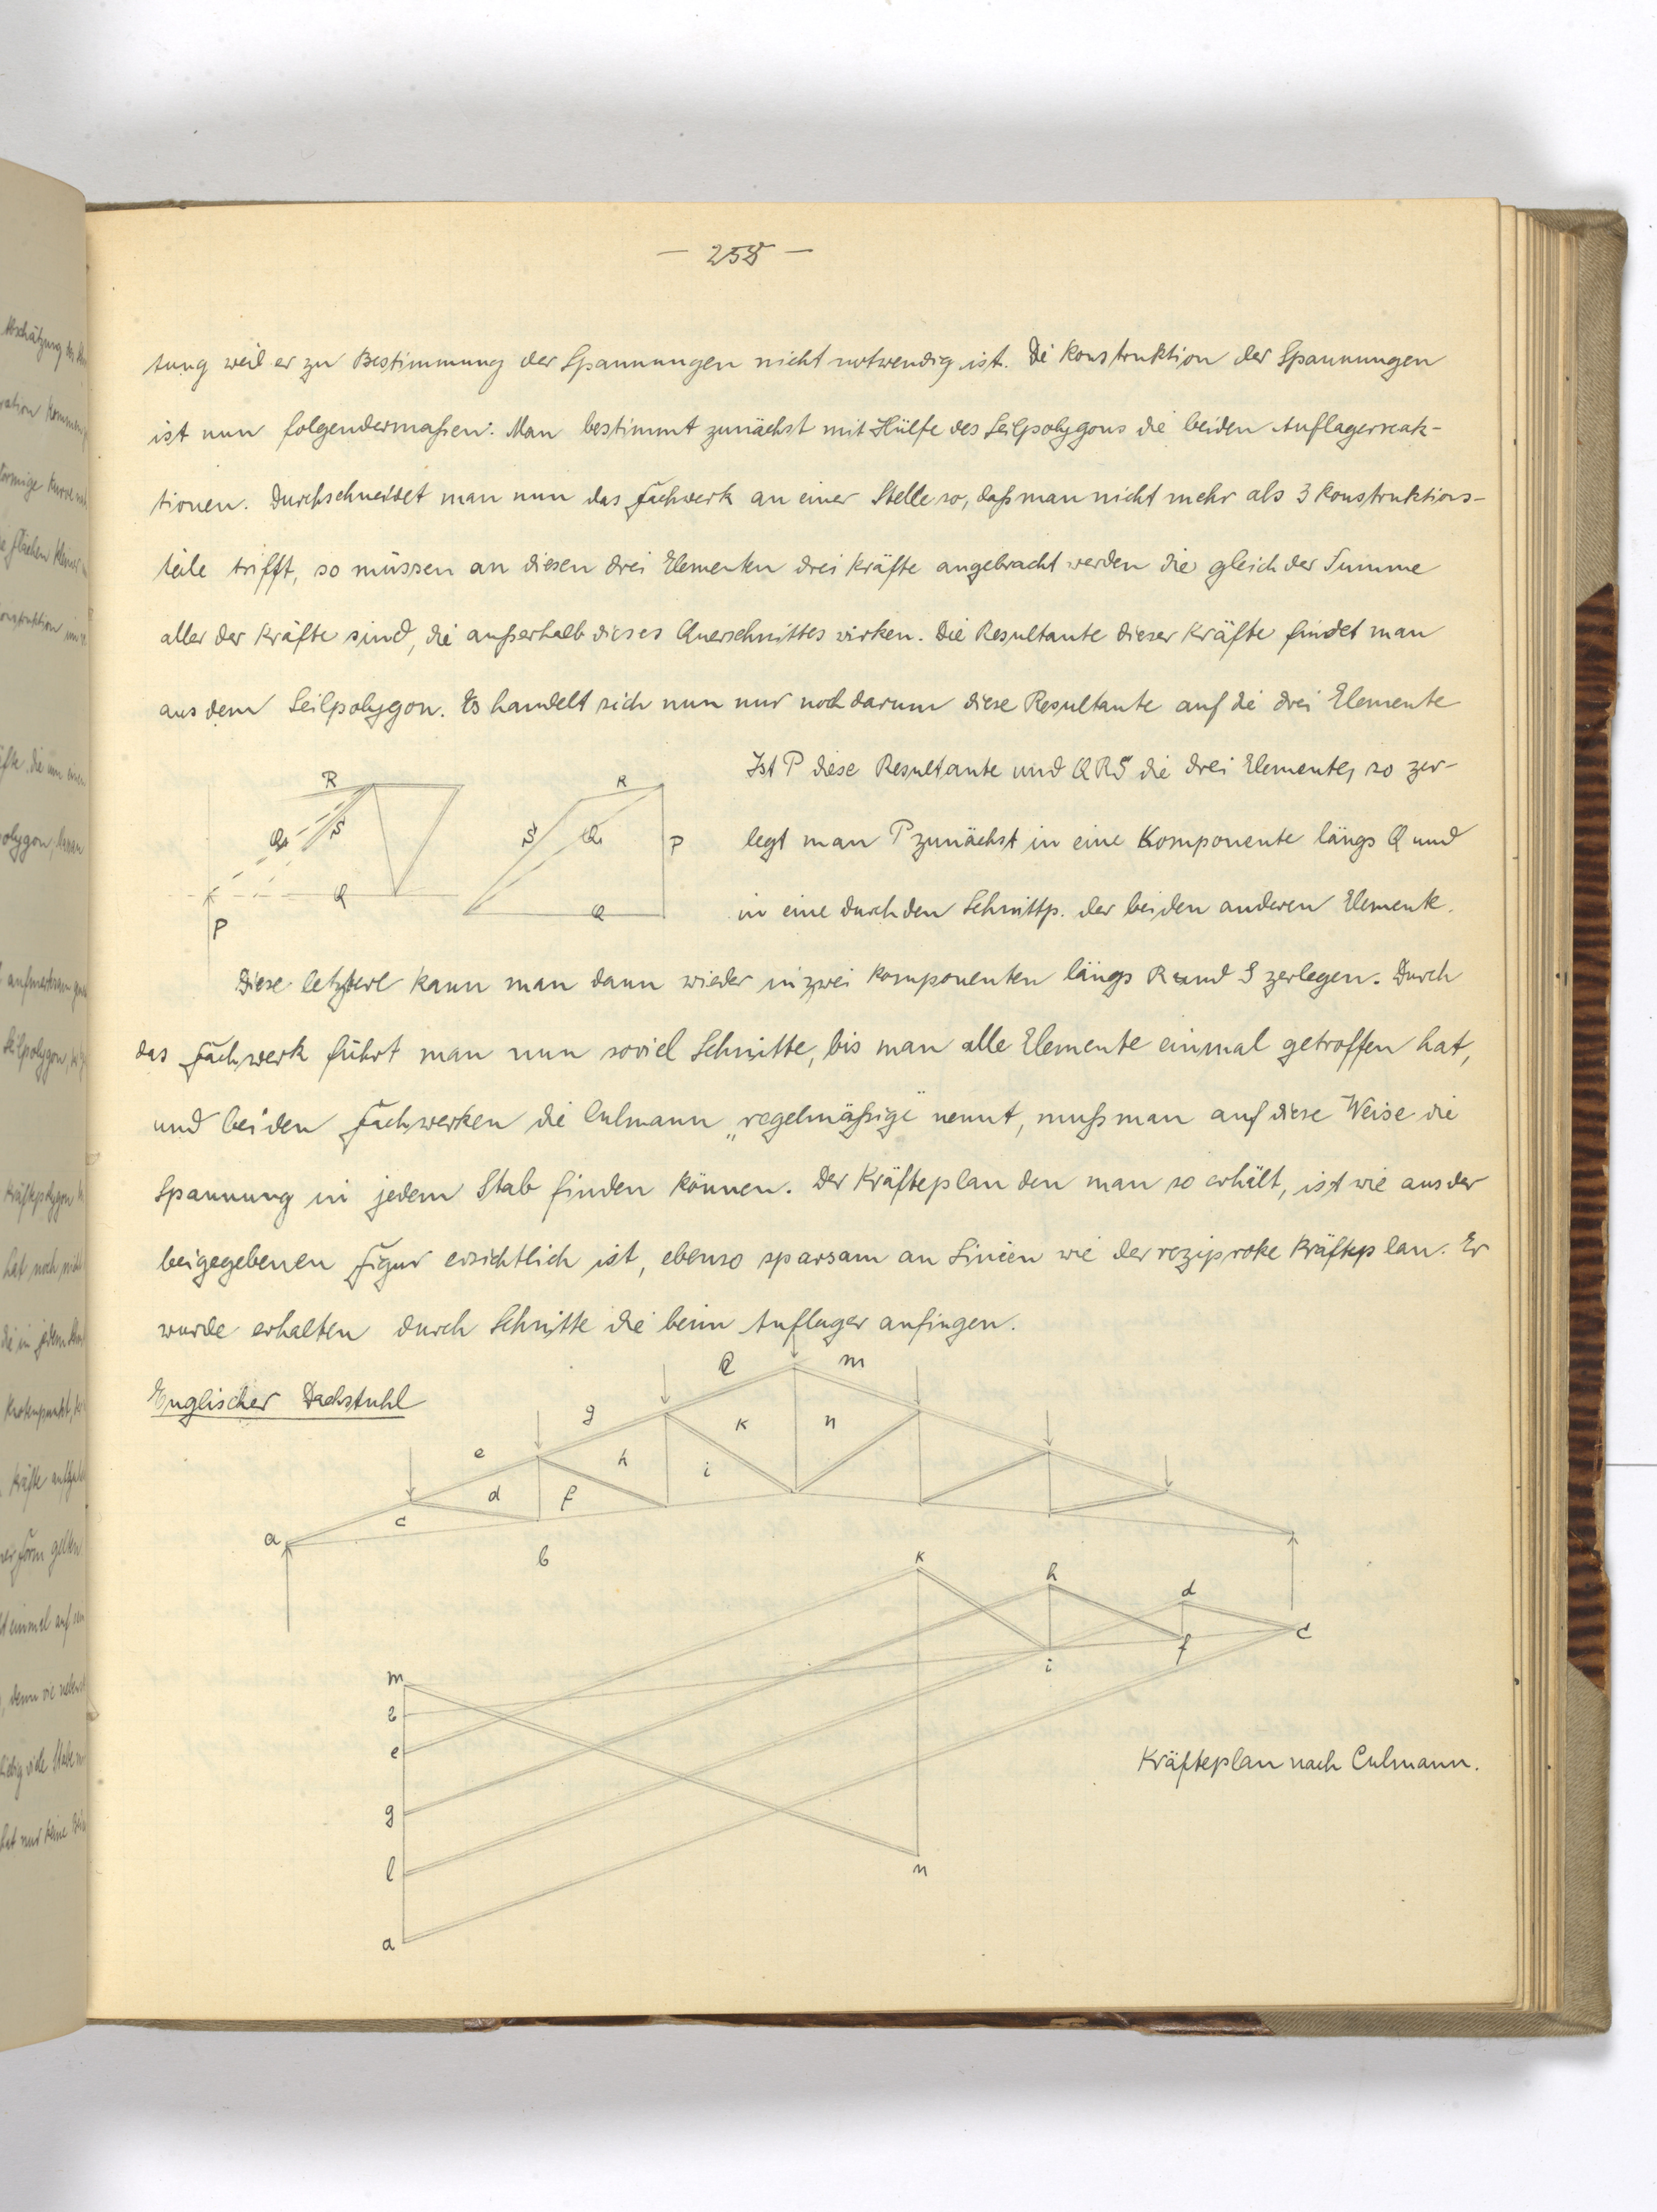 — 258 —
tung weil er zu Bestimmung der Spannungen nicht notwendig ist. Di Konstruktion der Spannungen
ist nun folgendermaßen: Man bestimmt zunächst mit Hülfe des Seilpolygons die beiden Auflagerreak-
tionen. Durchschneidet man nun das Fachwerk an einer Stelle so, daß man nicht mehr als 3 Konstruktions-
teile trifft, so müssen an diesen drei Elementen drei Kräfte angebracht werden die gleich der Summe
aller der Kräfte sind, die außerhalb dieses Querschnittes wirken. Die Resultante dieser Kräfte findet man
aus dem Seilpolygon. Es handelt sich nun nur noch darum diese Resultante auf die drei Elemente
Ist P diese Resultante und Q R S die drei Elemente, so zer-
legt man P zunächst in eine Komponente längs Q und
in eine durch den Schnittp. der beiden anderen Elemente.
R
S
Q
P
R
S
Q
P
Q
Diese letztere kann man dann wieder in zwei Komponenten längs R und S zerlegen. Durch
das Fachwerk führt man nun soviel Schnitte, bis man alle Elemente einmal getroffen hat,
und bei den Fachwerken die Culmann „regelmäßige" nennt, muß man auf diese Weise die
Spannung in jedem Stab finden können. Der Kräfteplan den man so erhält, ist wie aus der
beigegebenen Figur ersichtlich ist, ebenso sparsam an Linien wie der reziproke Kräfteplan. Er
wurde erhalten durch Schnitte die beim Auflager anfingen.
Englischer Dachstuhl
l m
g
k n
e h
i
d f
c
a
b
k
h
d
c
f
i
m
b
e
g
l
n
a
Kräfteplan nach Culmann.